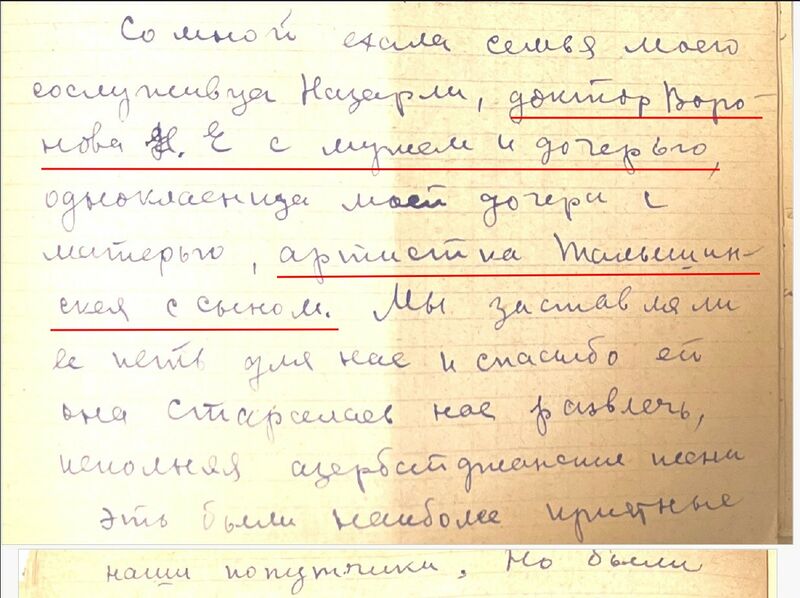 Со мной ехала семья моего
сослуживца Назарли, доктор Воро-
нова Н. Е с мужем и дочерью,
однокласница моей дочери с
матерью, артистка Талышин-
ская с сыном. Мы заставляли
ее петь для нас и спасибо ей
она старалась нас развлечь,
исполняя азербайджанские песни
Эть были наиболе приятные
наши попутчики. Но были